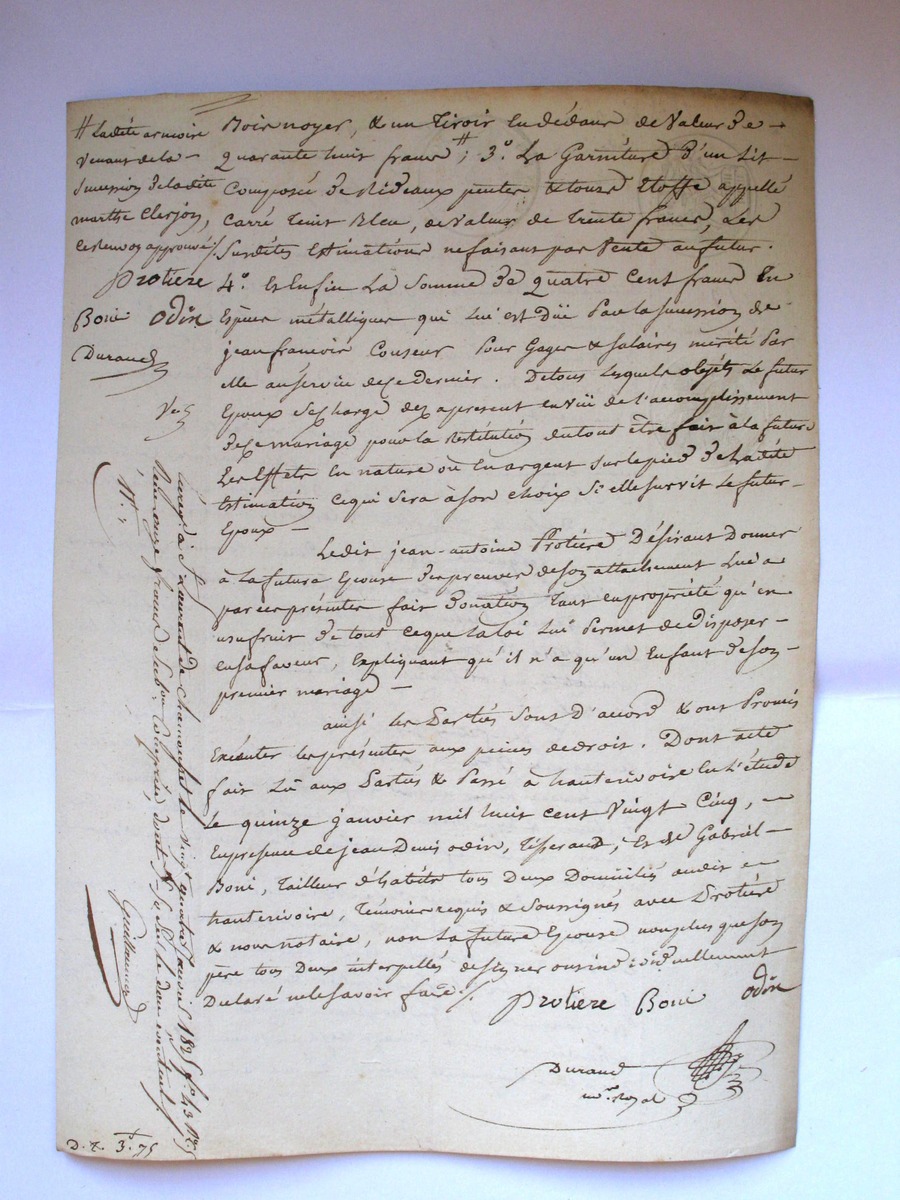 # Ladite armoire
venant de la
Succession de ladite
marthe Clerjon,
ce renvoy approuvé /.
Protiere
Boni odin
Durand
Bois noyer, & un tiroir en dedans de valeur de
quarante huit francs #; 3.º La Garniture d'un Lit
Composée de Rideaux pentes & tours Etoffe appellé
Carré teint Bleu, de valeur de trente francs, Les
Susdites Estimations ne faisant pas Vente au futur.
4.º Et Enfin La Somme de quatre Cent francs En
Espèces métalliques qui lui est Düe Par la succession de
jean francois Couseur Pour Gages & Salaires mérité Par
elle au service de ce dernier. De tous Lesquels objets Le futur
Epoux Se Charge dez apresent en vüe de l'accomplissement
de ce mariage pour la restitution du tout être fait à la future
Les Effets En nature ou En argent sur le pied de Ladite
Estimation ce qui Sera à son choix Si elle survit Le futur
Epoux
Ledit jean-antoine Protière Désirant Donner
à La future Epouse des preuves de son attachement Lui a
par ces présentes fait Donation tant en propriété qu'en
usufruit de tout ce que la loi Lui Permet de disposer
en sa faveur, Expliquant qu'il n'a qu'un Enfant de son
premier mariage
ainsi les Parties Sont D'accord & ont Promis
Exécuter les présentes aux peines de droit. Dont acte
fait Lû aux Parties & Passé à hauterivoire En L'étude
Le quinze janvier mil huit cent Vingt Cinq,
En présence de jean Denis odin, Tisserand, Et de Gabriel
Boni, Tailleur d'habits tous Deux Domiciliés audit
hauterivoire, Témoins requis & Soussignés avec Protière
& nous notaire, non La future Epouse non plus que son
père tous Deux interpellés de signer ont individuellement
Déclaré ne le savoir faire /.
Protiere Boni odin
Durand
n.re royal
Enreg. à S.t Laurent de chamousset le vingt quatre janvier 1825 f.o 43
francs
Guillaumard
D. E. 3.f 75